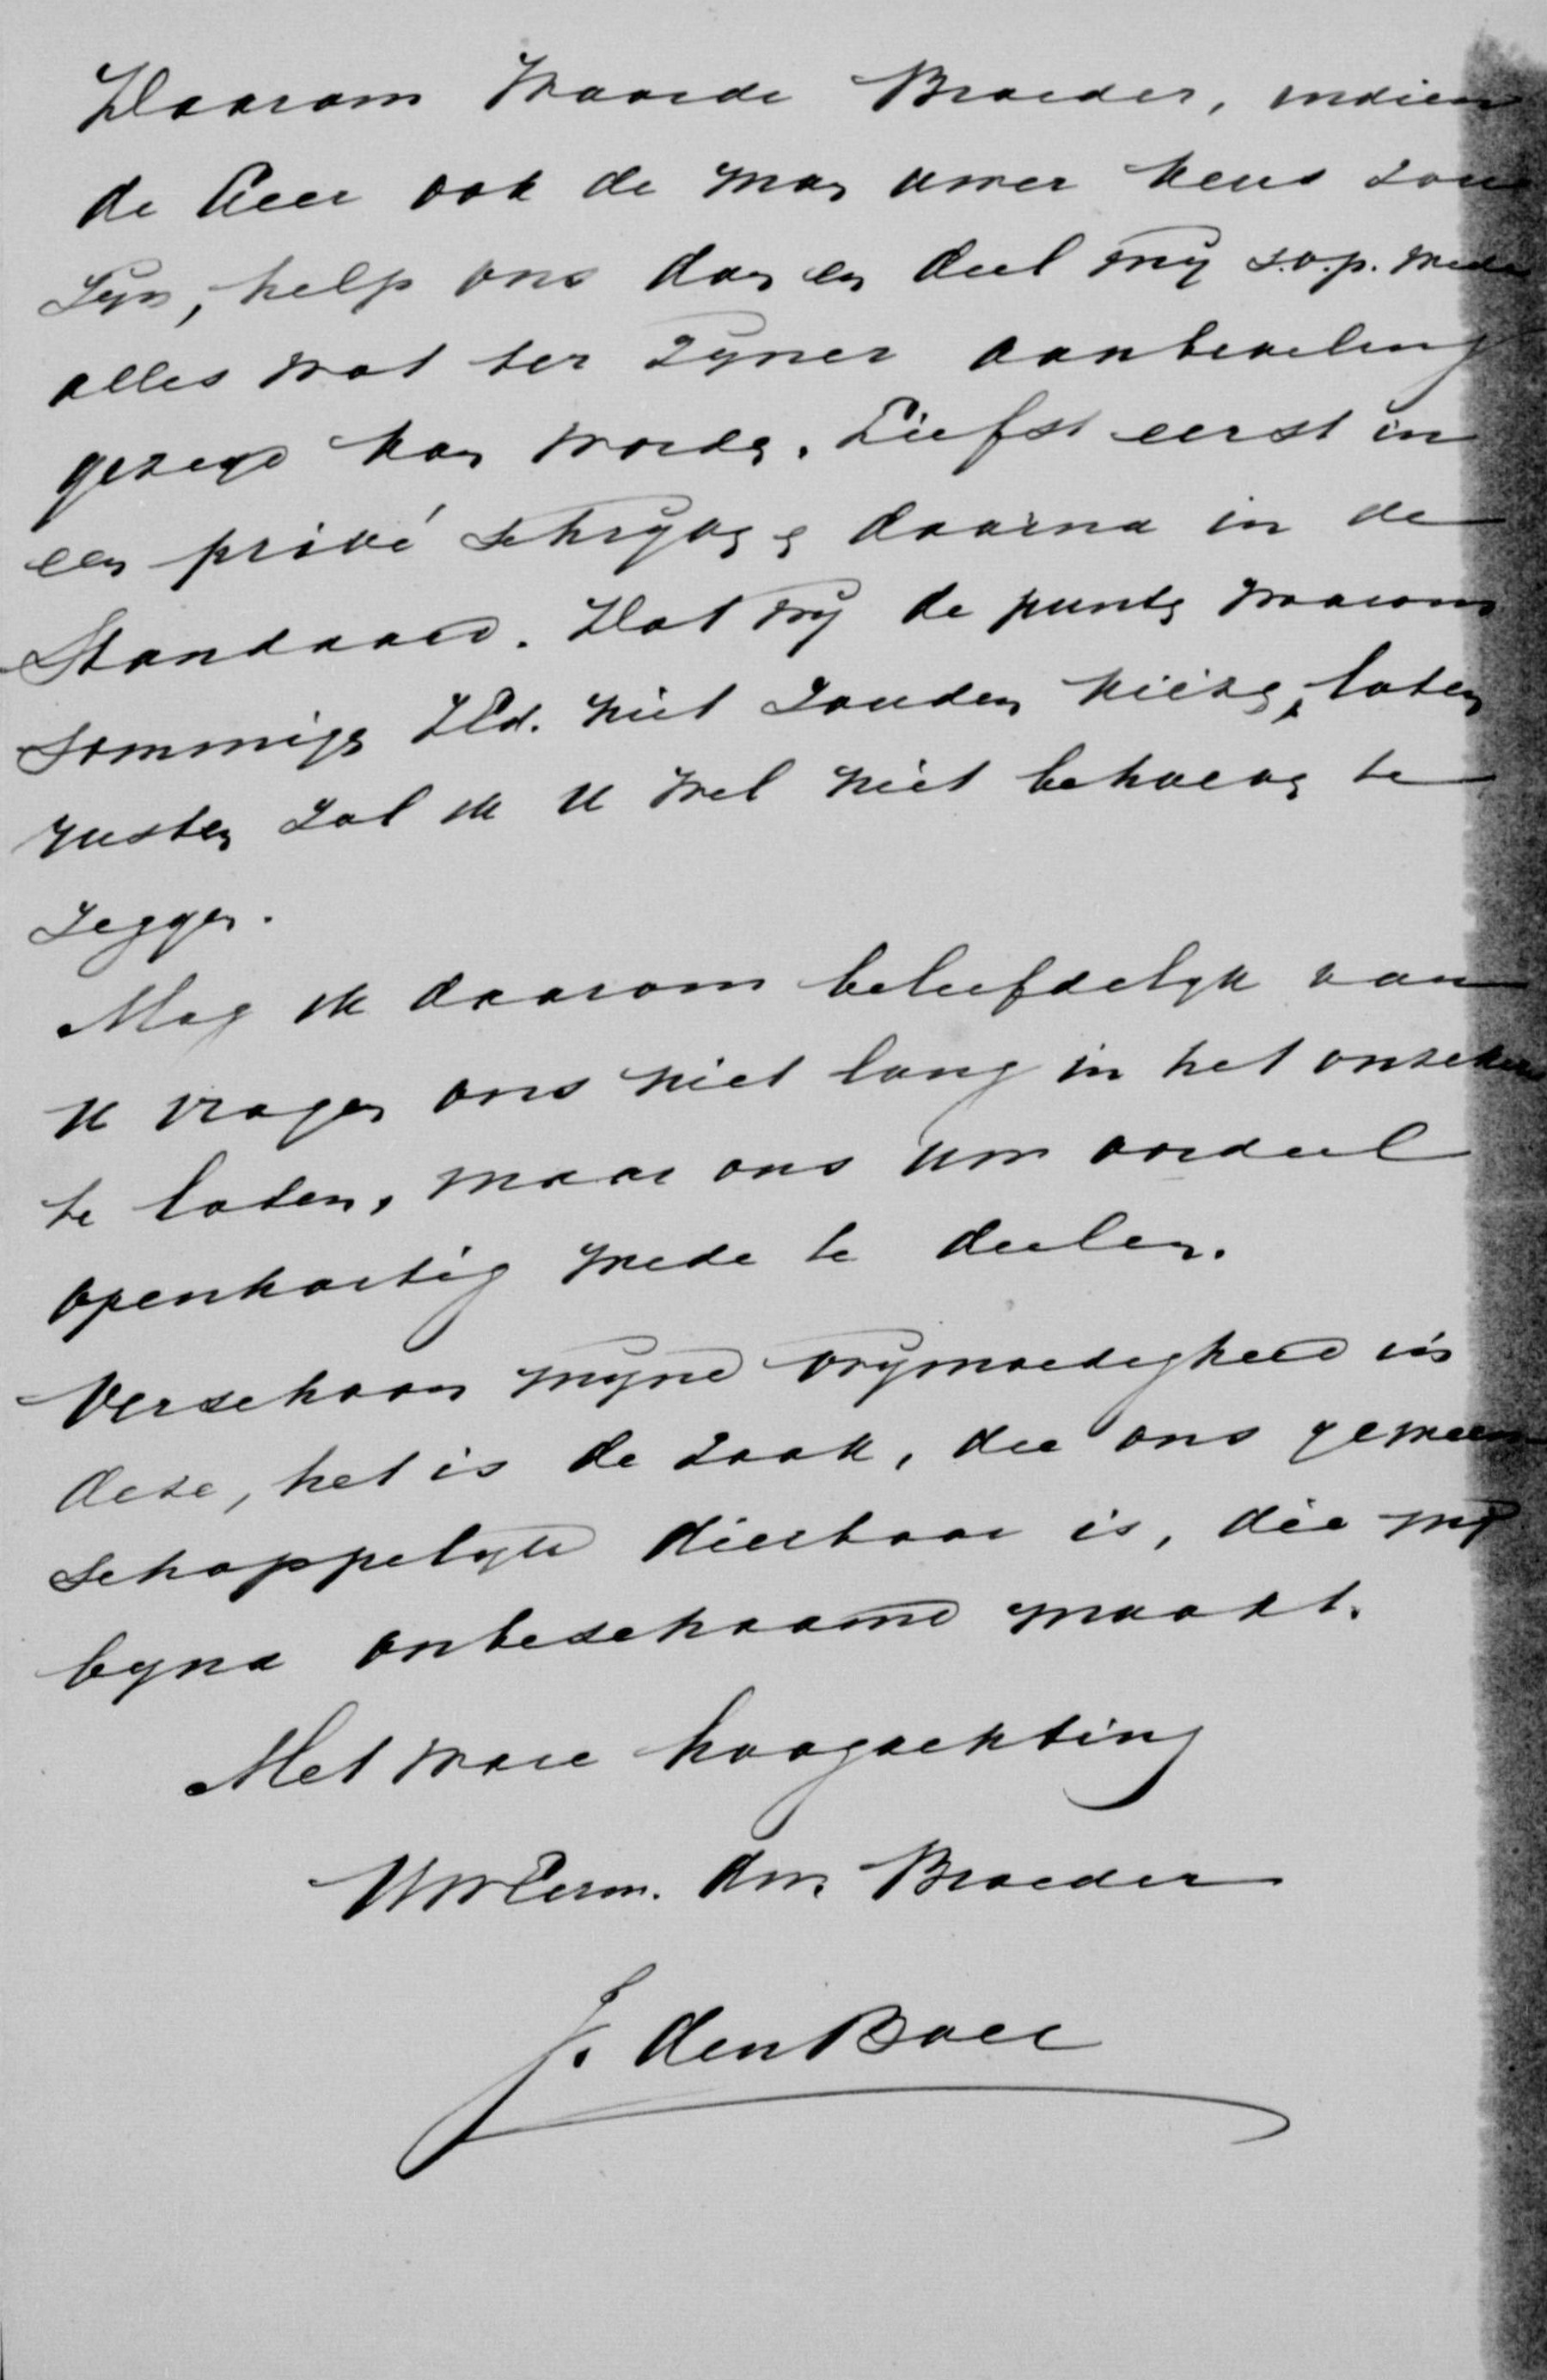 Daarom Waarde Broeder, indien
de Heer ook de man uwer keus zou
zyn, help ons dan en deel my s.v.p. mede
alles wat ter zyner aanbeveling
gezegd kan worden. Liefst eerst in
een privé schryven en daarna in de
Standaard. Dat wy de punten waarom
sommigen ZEd. niet zouden kiezen, laten
rusten zal ik U wel niet behoeven te
zeggen.
Mag ik daarom beleefdelyk van
U vragen ons niet lang in het onzekere
te laten, maar ons Uw oordeel
openhartig mede te deelen.
Verschoon myne vrymoedigheid in
deze, het is de zaak, die ons gemeen-
schappelyk dierbaar is, die my
byna onbeschaamd maakt.
Met ware hoogachting
UwEerw. dw. Broeder
J. den Boer